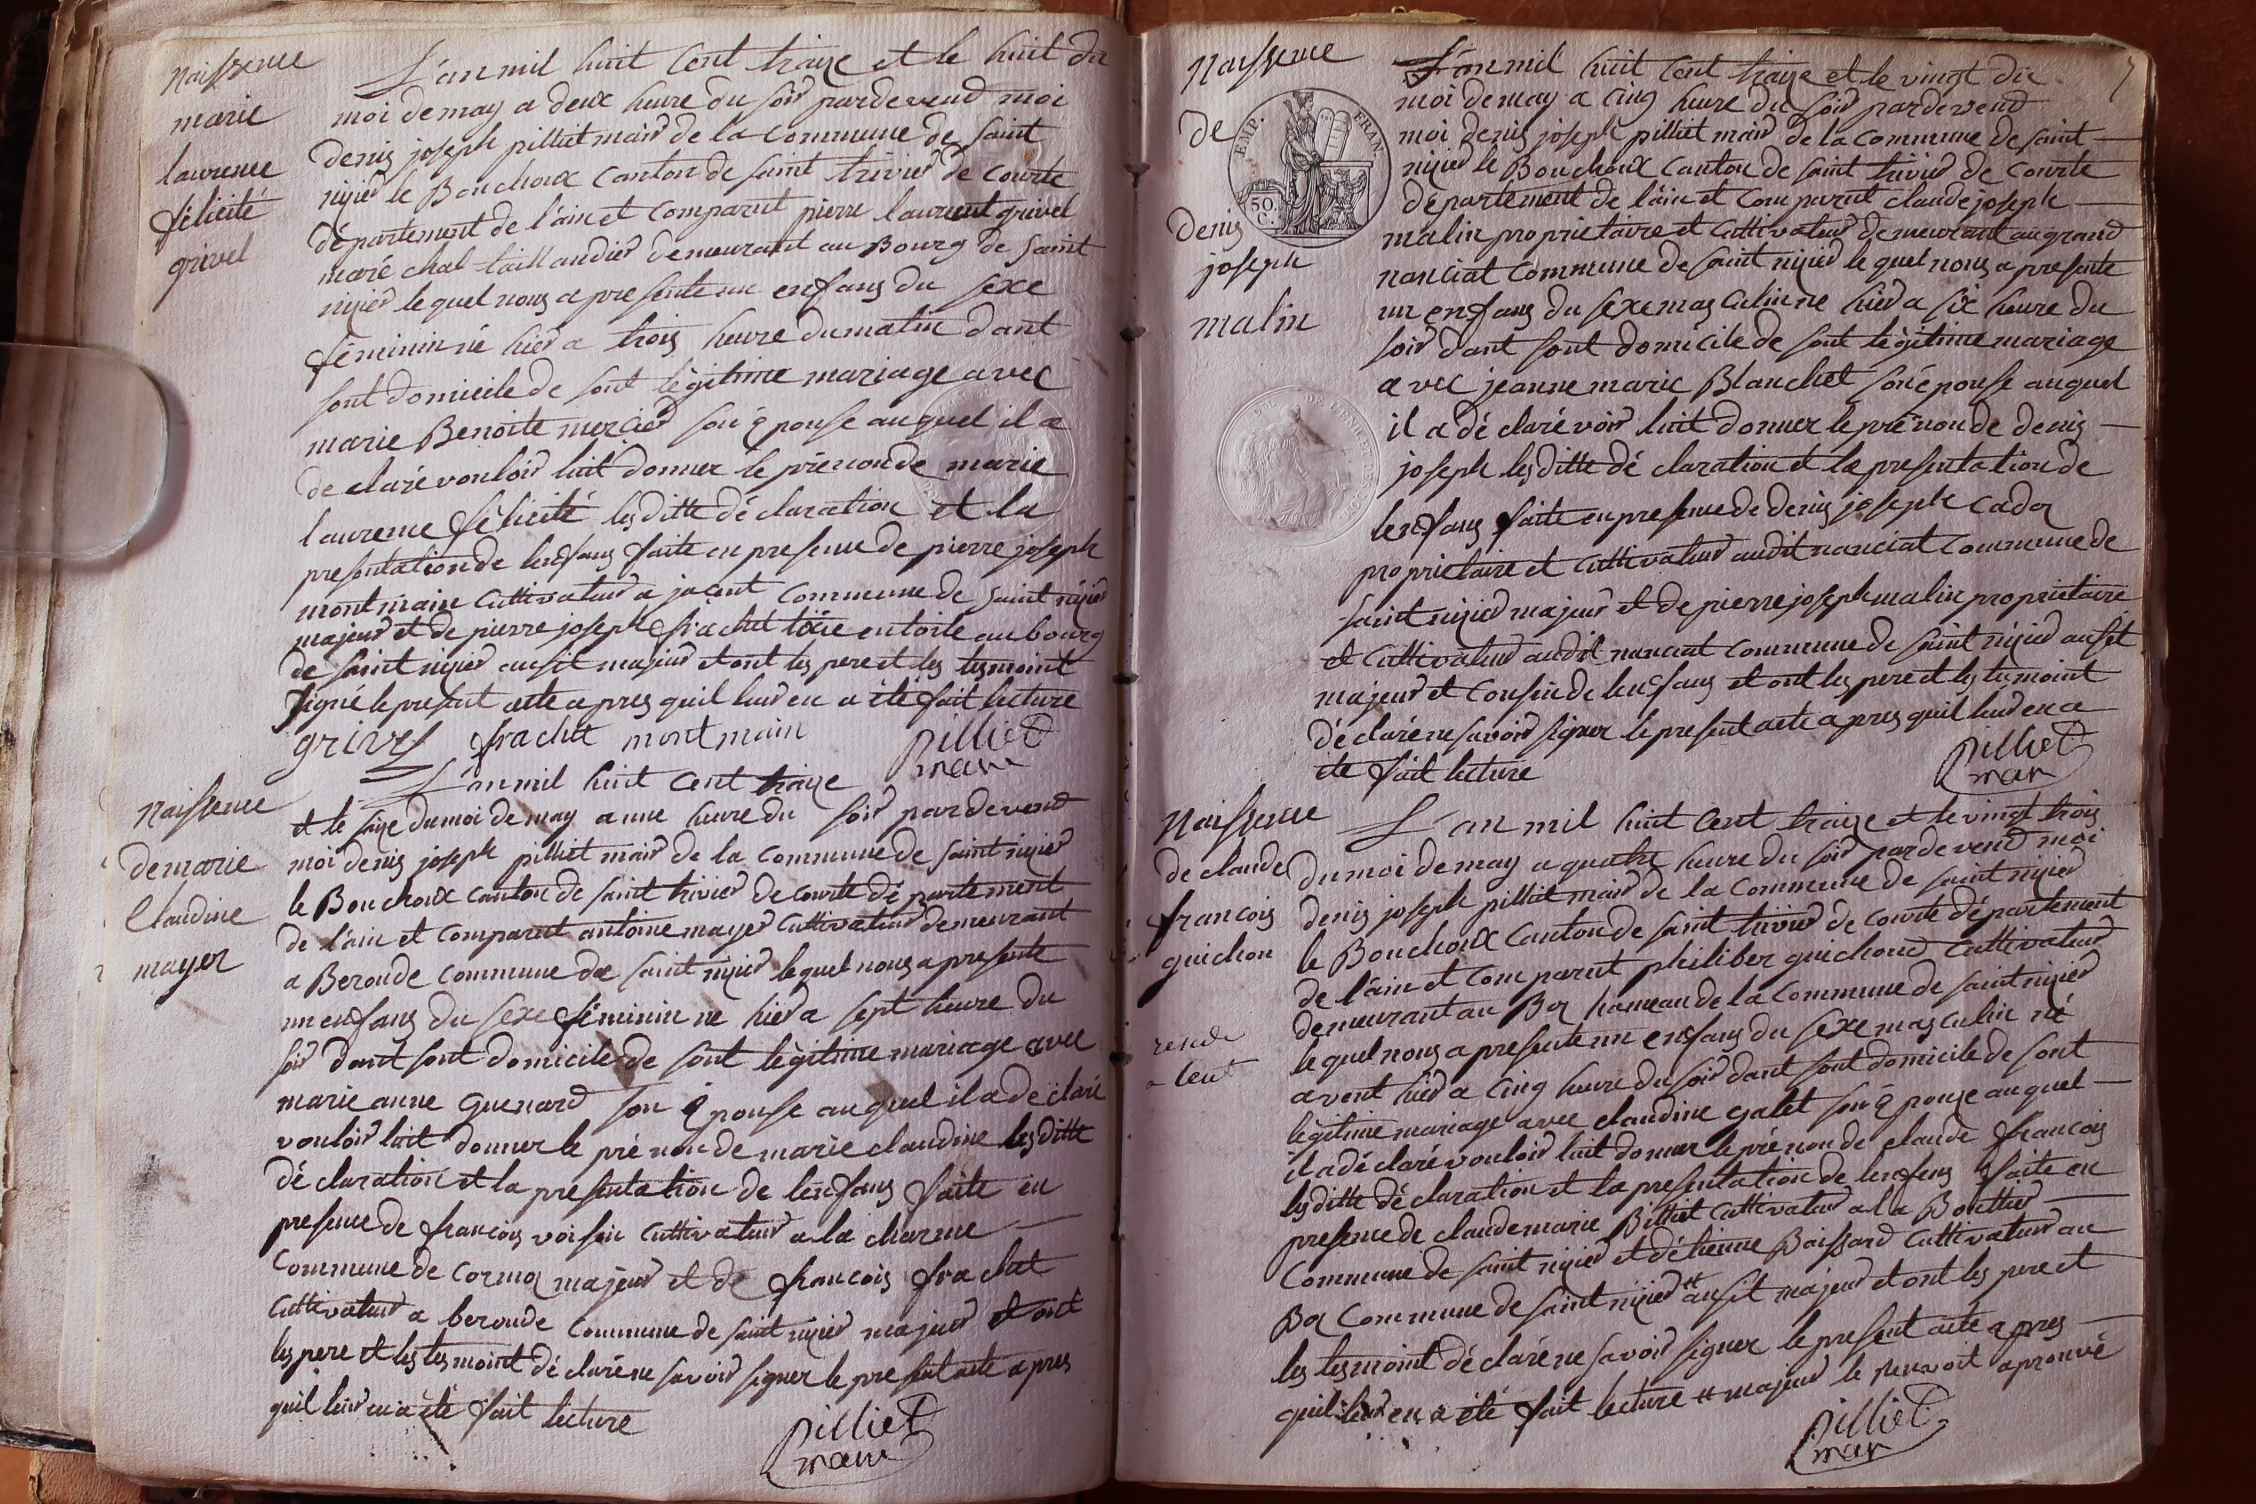 Naissence
marie
laurence
félicité
grivel
L'an mil huit cent traize et le huit du
moi de may a deux heure du soir pardevend moi
denis joseph pilliet mair de la commune de saint
nizier le Bouchoux canton de saint trivier de courte
département de l'ain et comparut pierre laurent grivel
maré chal taillandier demeurant au Bourg de saint
nizier le quel nous a presente un enfans du sexe
féminin né hier a trois heure du matin dant
sont domicile de sont légitime mariage avec
marie Benoite mercier son épouse au quel il a
de claré vouloir luit donner le prénon de marie
laurence félicité les ditte dé claration et la
presentation de lenfans faite en presence de pierre joseph
montmain cultivateur a jacent commune de saint nizier
majeur et de pierre joseph frachet tixie en toile au bourg
de saint nizier ausit majeur et ont les pere et les tesmoint
signé le present acte apres quil leur en a été fait lecture
grivel frachet montmain pilliet
mair
Naissence
de marie
Claudine
mayer
L'an mil huit cent traize
et le saize du moi de may a une heure du soir pardevend
moi denis joseph pilliet mair de la commune de saint nizier
le Bouchoux canton de saint trivier de courte département
de l'ain et comparut antoine mayer cultivateur demeurant
a Beronde commune de saint nizier le quel nous a presente
un enfans du sexe féminin ne hier a sept heure du
soir dant sont domicile de sont légitime mariage avec
marie anne Guenard son épouse au quel il a de claré
vouloir luit donner le pré non de marie claudine les ditte
dé claration et la presentation de lenfans faite en
presence de francois voisin cultivateur a la charme
commune de cormoz majeur et de francois frachet
cultivateur a beronde commune de saint nizier majeur et ont
les pere et les tesmoint dé claré ne savoir signer le present acte apres
quil leur en a été fait lecture
pilliet
mair
7
Naissence
de
denis
joseph
malin
EMP. FRAN.
50.
C.
L'an mil huit cent traize et le vingt du
moi de may a cinq heure du soir pardevend
moi denis joseph pilliet mair de la commune de saint
nizier le Bouchoux canton de saint trivier de courte
département de l'ain et comparut claude joseph
malin proprietaire et cultivateur demeurant au grand
nanciat commune de saint nizier le quel nous a presente
un enfans du sexe masculin ne hier a six heure du
soir dant sont domicile de sont légitime mariage
avec jeanne marie Blanchet son épouse au quel
il a dé claré voir luit donner le pré non de denis
joseph les ditte dé claration et la presentation de
lenfans faite en presence de denis joseph cadoz
proprietaire et cultivateur audit nanciat commune de
saint nizier majeur et de pierre joseph malin proprietaire
et cultivateur audit nanciat commune de saint nizier ausit
majeur et cousin de lenfans et ont les pere et les temoint
dé claré ne savoir signer le present acte apres quil leur en a
été fait lecture
pilliet
mair
Naissence
de claude
francois
guichon
L'an mil huit cent traize et le vingt trois
du moi de may a quatre heure du soir pardevend moi
denis joseph pilliet mair de la commune de saint nizier
le Bouchoux canton de saint trivier de courte département
de l'ain et comparut philiber guichond cultivateur
demeurant au Boz hameau de la commune de saint nizier
le quel nous a presente un enfans du sexe masculin né
avent hier a cinq heure du soir dant sont domicile de sont
légitime mariage avec claudine galet son épouze au quel
il a dé claré vouloir luit donner le pré non de claude francois
les ditte dé claration et la presentation de lenfens faite en
presence de claude marie Billiet cultivateur a la Bouttier
commune de saint nizier et détienne Boissard cultivateur au
Boz commune de saint nizier # ausit majeur et ont les pere et
les tesmoint dé claré ne savoir signer le present acte apres
quil leur en a été fait lecture # majeur le renvoit aprouvé
pilliet
mair